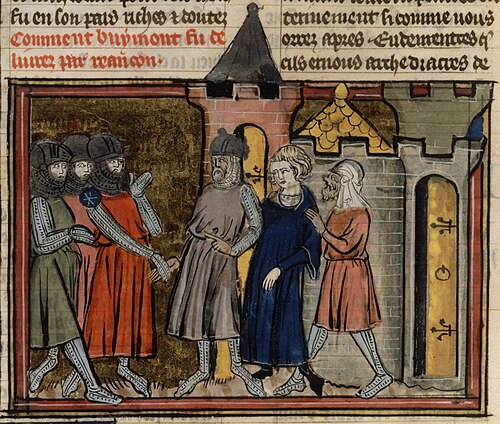 fu en son païs riches ⁊ doutez
Comment buymont fu de
liurez par raancon.
terinement si comme uous
orrez apres. Endementres q̄
cils ernous arche diacres de